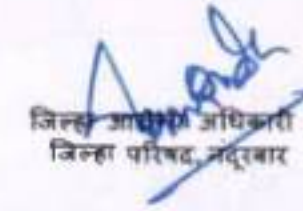 जिल्हा आरोग्य अधिकारी
जिल्हा परिषद, नंदूरबार